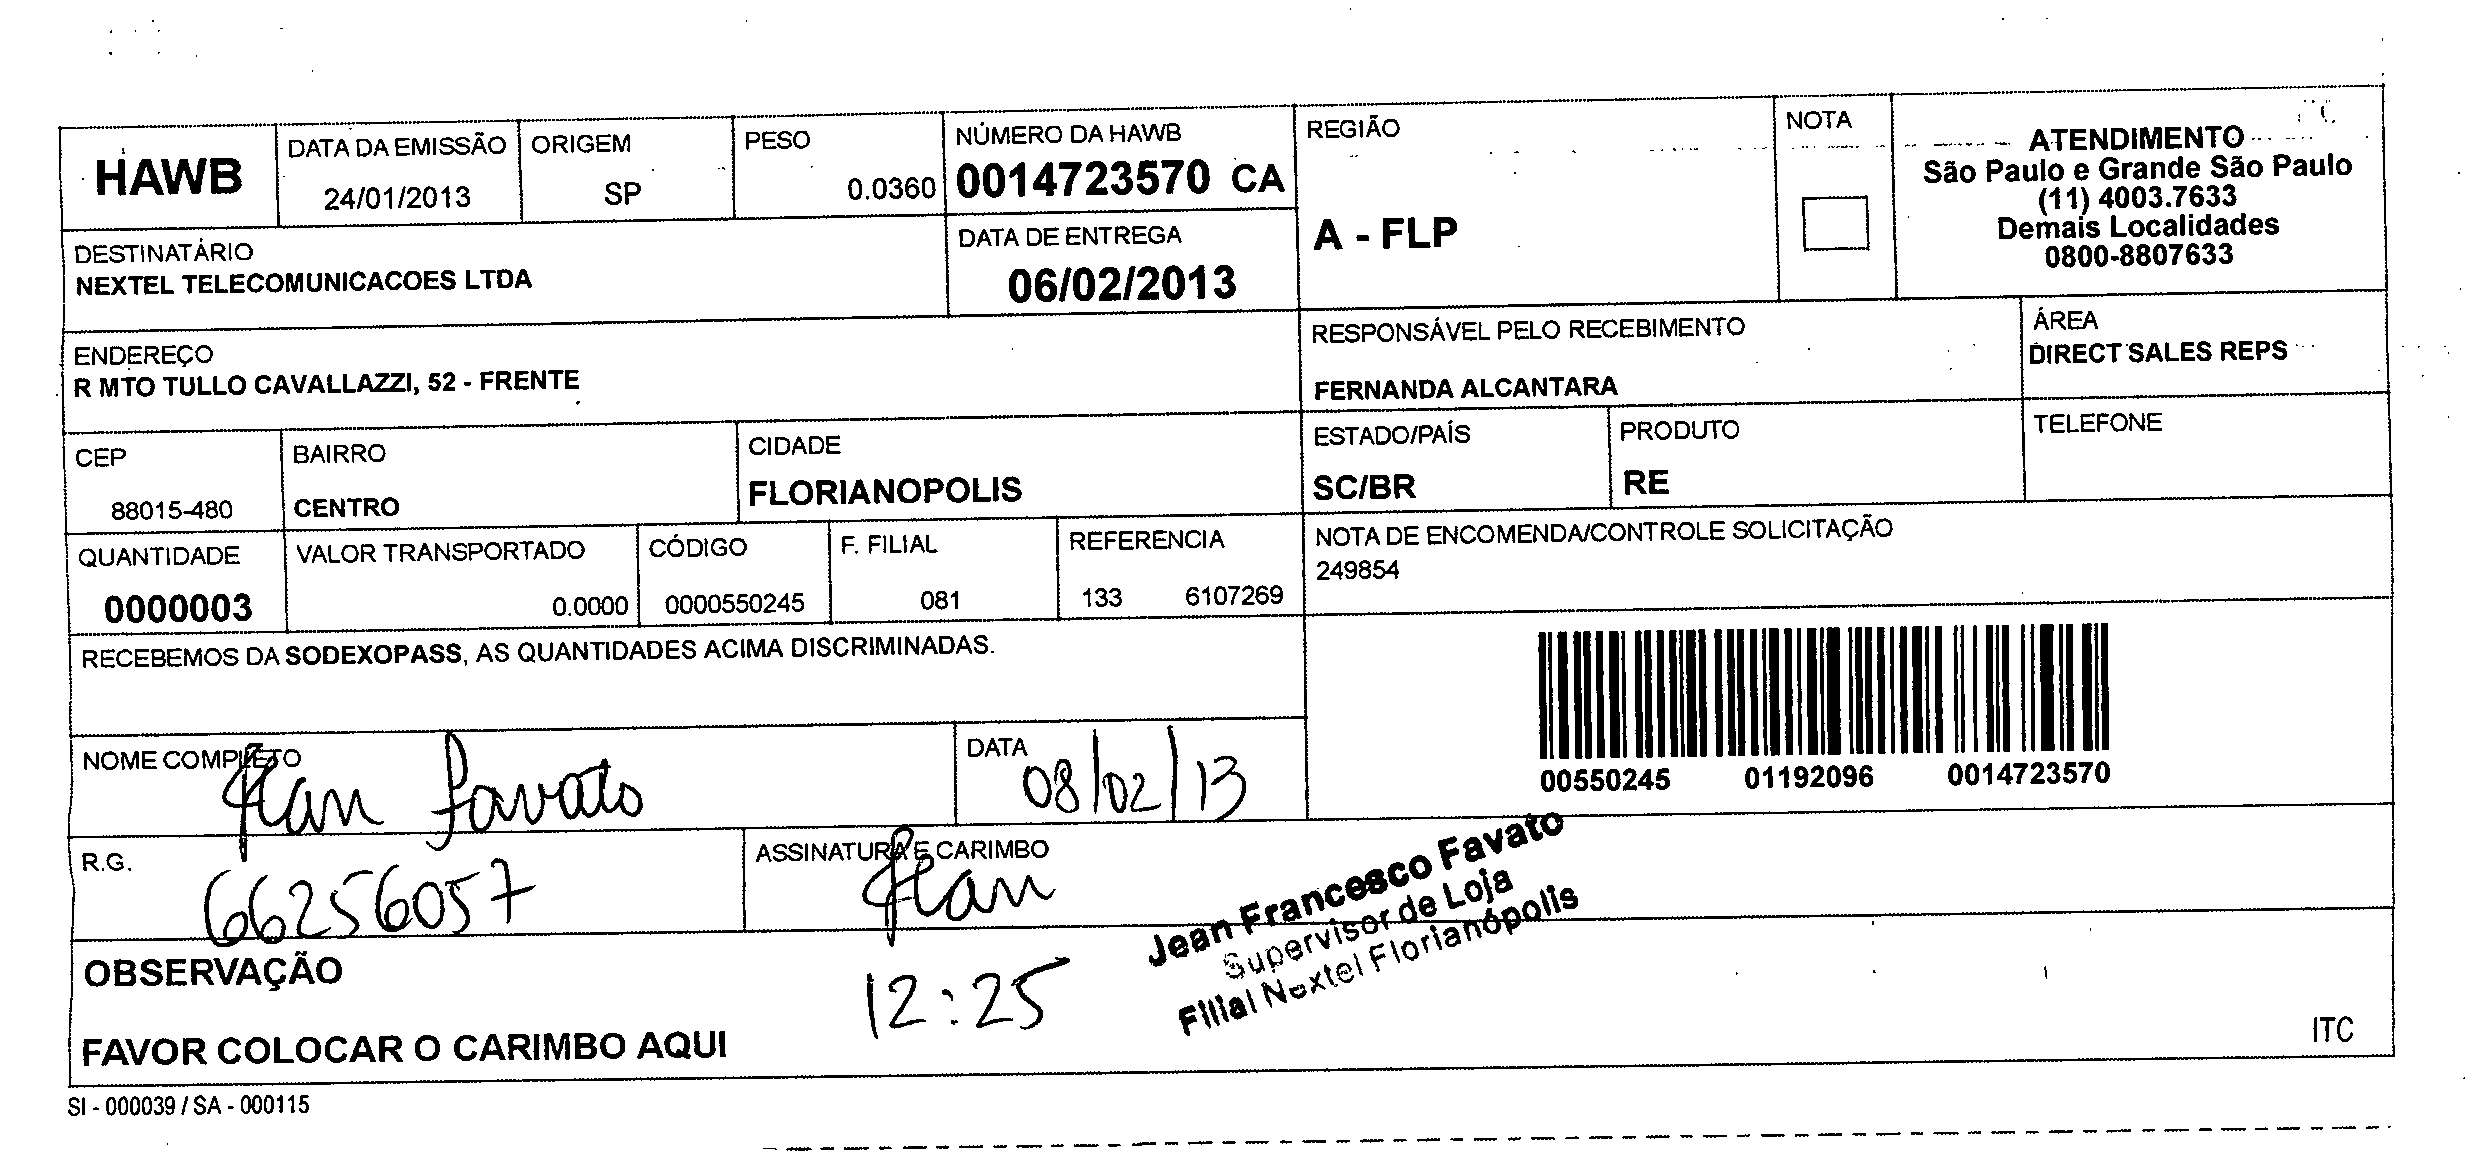 HAWB
DATA DA EMISSÃO
24/01/2013
ORIGEM
SP
PESO
0.0360
NÚMERO DA HAWB
0014723570 CA
REGIÃO
A - FLP
NOTA
ATENDIMENTO
São Paulo e Grande São Paulo
(11) 4003.7633
Demais Localidades
0800-8807633
DESTINATÁRIO
NEXTEL TELECOMUNICACOES LTDA
DATA DE ENTREGA
06/02/2013
ENDEREÇO
R MTO TULLO CAVALLAZZI, 52 - FRENTE
RESPONSÁVEL PELO RECEBIMENTO
FERNANDA ALCANTARA
ÁREA
DIRECT SALES REPS
CEP
88015-480
BAIRRO
CENTRO
CIDADE
FLORIANOPOLIS
ESTADO/PAÍS
SC/BR
PRODUTO
RE
TELEFONE
QUANTIDADE
0000003
VALOR TRANSPORTADO
0.0000
CÓDIGO
0000550245
F. FILIAL
081
REFERENCIA
133 6107269
NOTA DE ENCOMENDA/CONTROLE SOLICITAÇÃO
249854
RECEBEMOS DA SODEXOPASS, AS QUANTIDADES ACIMA DISCRIMINADAS.
00550245 01192096 0014723570
NOME COMPLETO
Jean Favato
DATA
08/02/13
R.G.
66256057
ASSINATURA E CARIMBO
Jean
Jean Francesco Favato
Supervisor de Loja
Filial Nextel Florianópolis
OBSERVAÇÃO
12:25
FAVOR COLOCAR O CARIMBO AQUI
ITC
SI - 000039 / SA - 000115